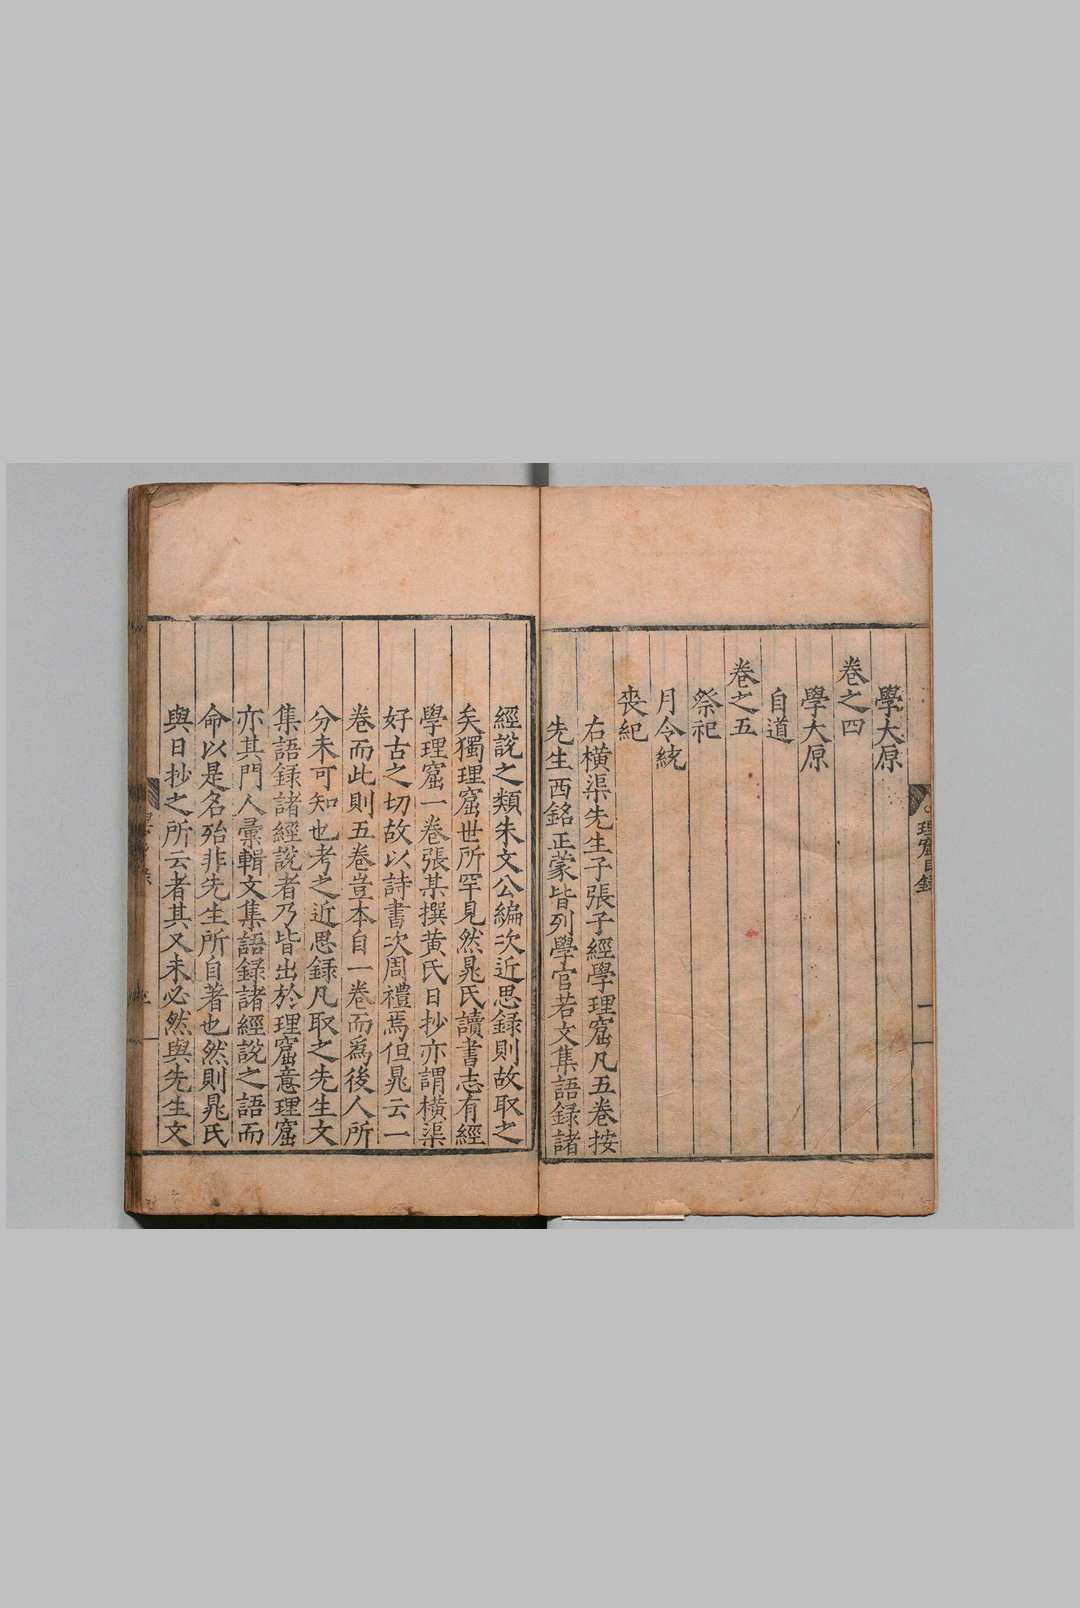 學大原
卷之四
學大原
自道
卷之五
祭祀
月令統
喪紀
右橫渠先生子張子經學理窟凡五卷按
先生西銘正蒙皆列學官若文集語録諸
經說之類朱文公編次近思録則故取之
矣獨理窟世所罕見然晁氏讀書志有經
學理窟一卷張某撰黄氏日抄亦謂橫渠
好古之切故以詩書次周禮焉但晁云一
卷而此則五卷豈本自一卷而爲後人所
分未可知也考之近思録凡取之先生文
集語録諸經說者乃皆出於理窟意理窟
亦其門人彙輯文集語録諸經說之語而
命以是名殆非先生所自著也然則晁氏
與日抄之所云者其又未必然與先生文
理窟目録
一